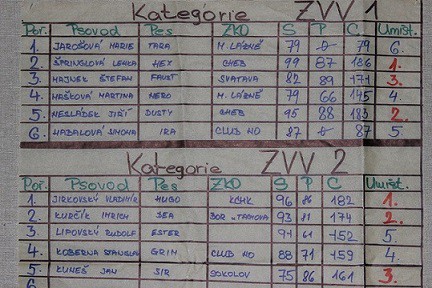 Kategorie ZVV 1
Poř. Psovod Pes ZKO S P C Umíst.
1. JAROŠOVÁ MARIE TARA M. LÁZNĚ 79 0 79 6.
2. ŠPRINGLOVÁ LENKA HEY CHEB 99 87 186 1.
3. HAJNEK ŠTEFAN FAUST SVATAVA 82 89 171 3.
4. HAŠKOVÁ MARTINA NERO M. LÁZNĚ 79 66 145 4.
5. NESLÁDEK JIŘÍ DUSTY CHEB 95 88 183 2.
6. HABALOVÁ SIMONA IRA CLUB HD 87 0 87 5.
Kategorie ZVV 2
Poř. Psovod Pes ZKO S P C Umíst.
1. JIRKOVSKÝ VLADIMÍR HUGO KCHK 96 86 182 1.
2. KURČÍK IMRICH 93 81 174 2.
3. LIPOVSKÝ RUDOLF ESTER 91 61 152 5.
4. KOBERNA STANISLAV GRIM CLUB HD 88 71 159 4.
5. KUNEŠ JAN SIR SOKOLOV 75 86 161 3.